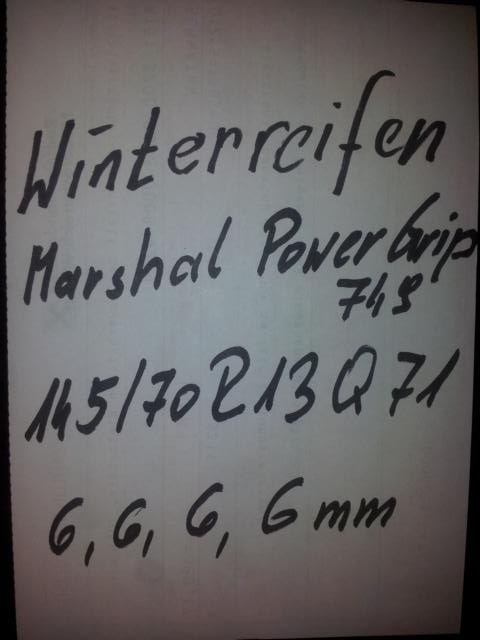 Winterreifen
Marshal Power Grip
749
145/70 R13 Q 71
6, 6, 6, 6 mm